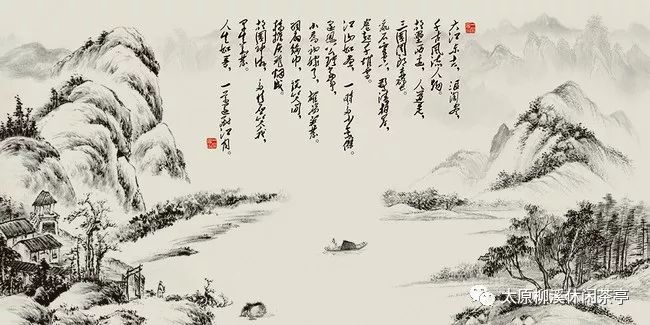 大江东去，浪淘尽，
千古风流人物。
故垒西边，人道是，
三国周郎赤壁。
乱石穿空，惊涛拍岸，
卷起千堆雪。
江山如画，一时多少豪杰。
遥想公瑾当年，
小乔初嫁了，雄姿英发。
羽扇纶巾，谈笑间，
樯橹灰飞烟灭。
故国神游，多情应笑我，
早生华发。
人生如梦，一尊还酹江月。
太原柳溪休闲茶亭